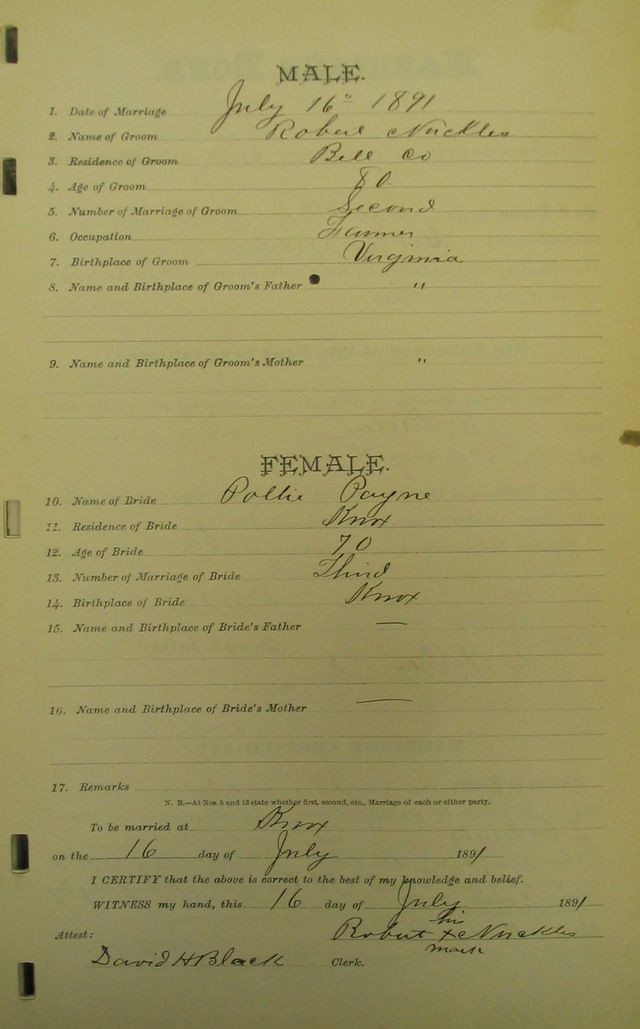 MALE.
1. Date of Marriage July 16" 1891
2. Name of Groom Robert Nuckles
3. Residence of Groom Bell Co
4. Age of Groom 80
5. Number of Marriage of Groom Second
6. Occupation Farmer
7. Birthplace of Groom Virginia
8. Name and Birthplace of Groom's Father "
9. Name and Birthplace of Groom's Mother "
FEMALE.
10. Name of Bride Pollie Payne
11. Residence of Bride Knox
12. Age of Bride 70
13. Number of Marriage of Bride Third
14. Birthplace of Bride Knox
15. Name and Birthplace of Bride's Father —
16. Name and Birthplace of Bride's Mother —
17. Remarks
N. B.—At Nos. 5 and 13 state whether first, second, etc., Marriage of each or either party.
To be married at Knox
on the 16 day of July 1891
I CERTIFY that the above is correct to the best of my knowledge and belief.
WITNESS my hand, this 16 day of July 1891
his
Attest: Robert x Nuckles
mark
David H Black Clerk.